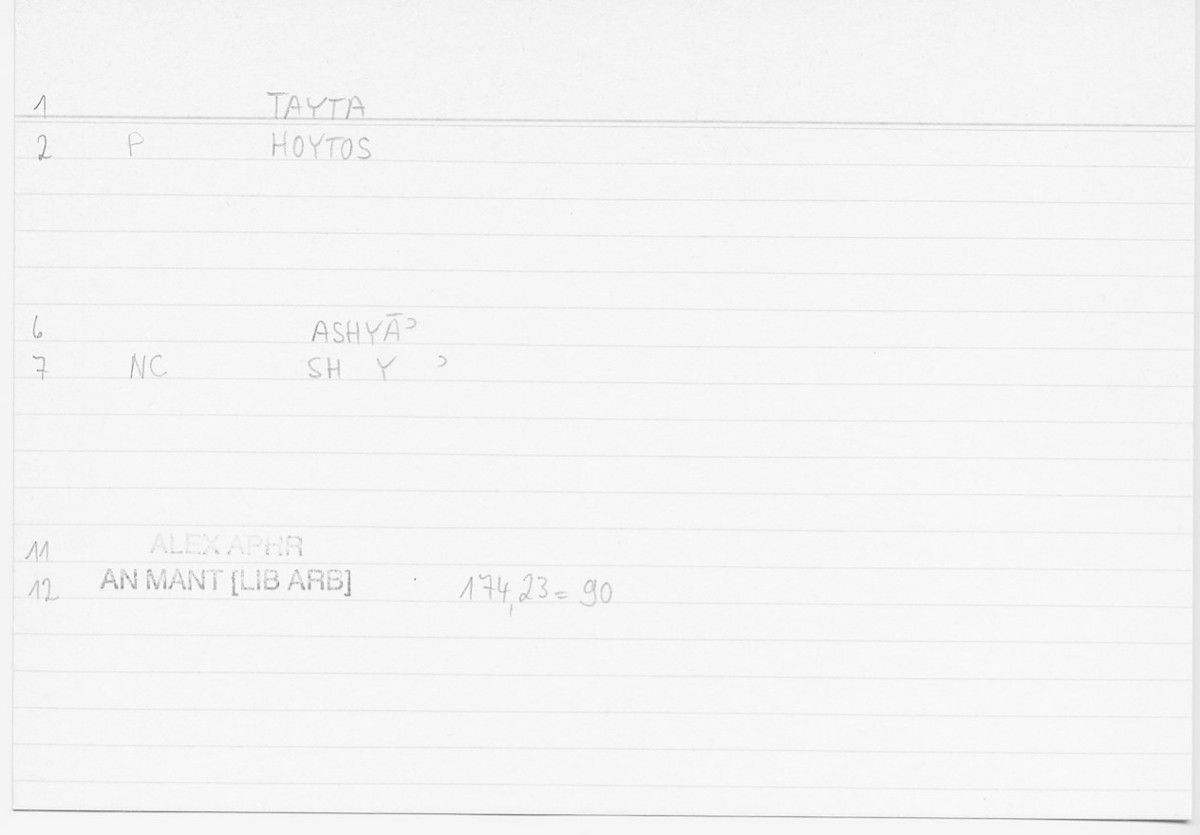 1 TAYTA
2 P HOYTOS
6 ASHYĀʾ
7 NC SH Y ʾ
11 ALEX APHR
12 AN MANT [LIB ARB] 174,23 = 90